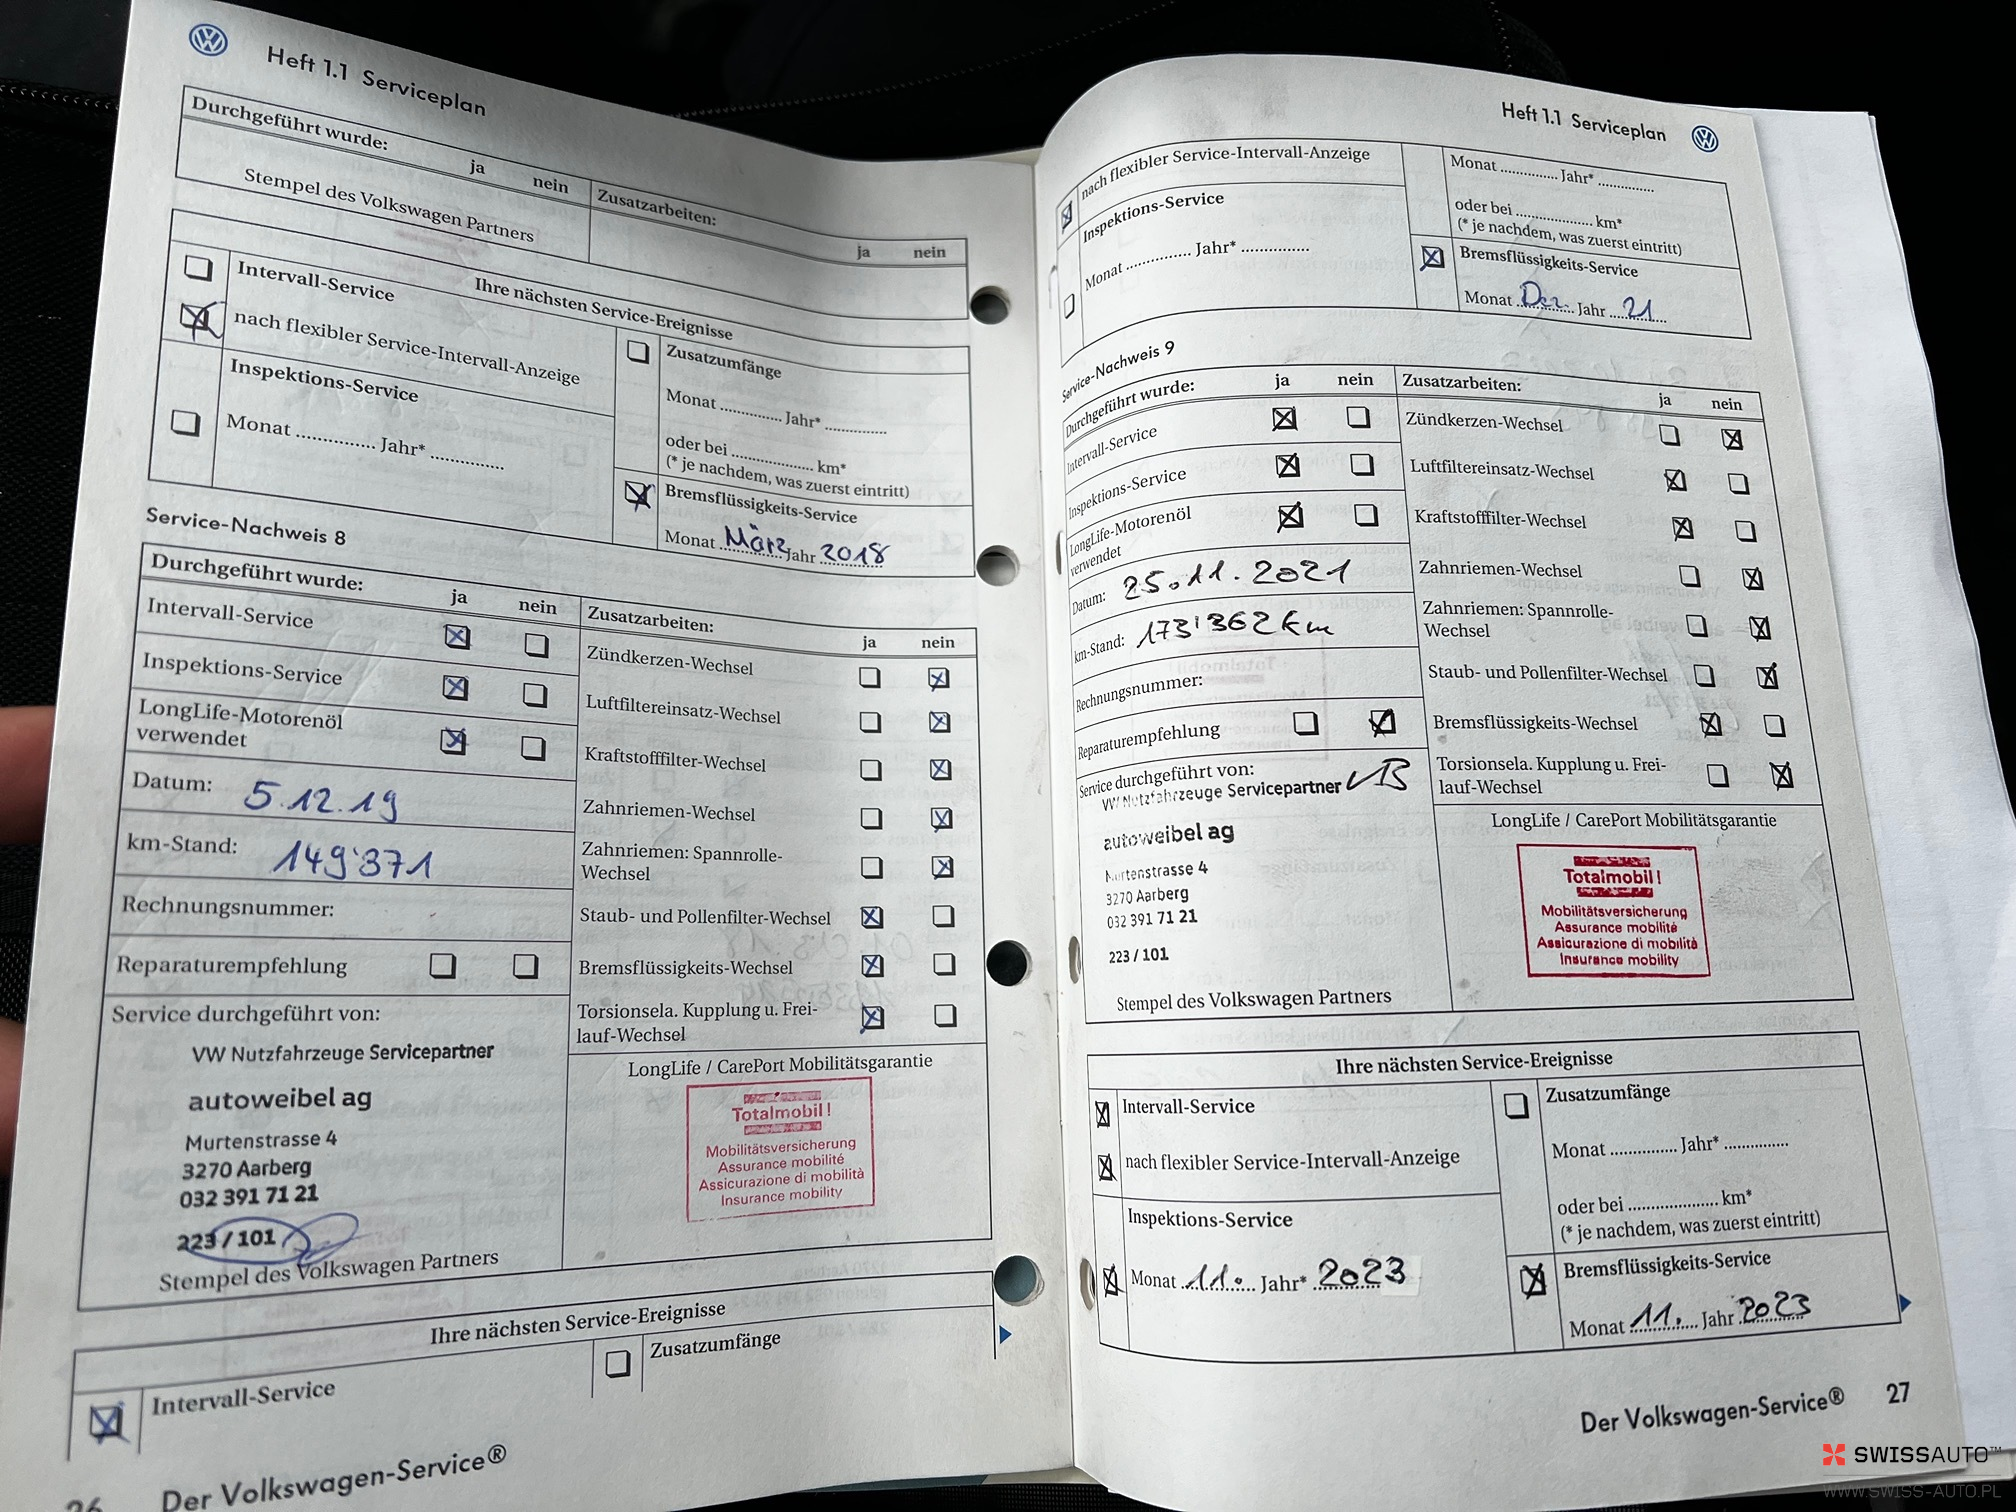 Heft 1.1 Serviceplan
Durchgeführt wurde:
ja nein
Stempel des Volkswagen Partners
Zusatzarbeiten:
ja nein
Ihre nächsten Service-Ereignisse
Intervall-Service
nach flexibler Service-Intervall-Anzeige
Inspektions-Service
Monat .............. Jahr* .............
Zusatzumfänge
Monat ............. Jahr* .............
oder bei .................. km*
(* je nachdem, was zuerst eintritt)
Bremsflüssigkeits-Service
Monat März Jahr 2018
Service-Nachweis 8
Durchgeführt wurde: ja nein
Intervall-Service
Inspektions-Service
LongLife-Motorenöl
verwendet
Datum: 5.12.19
km-Stand: 149'371
Rechnungsnummer:
Reparaturempfehlung
Service durchgeführt von:
VW Nutzfahrzeuge Servicepartner
autoweibel ag
Murtenstrasse 4
3270 Aarberg
032 391 71 21
223 / 101
Stempel des Volkswagen Partners
Zusatzarbeiten:
ja nein
Zündkerzen-Wechsel
Luftfiltereinsatz-Wechsel
Kraftstofffilter-Wechsel
Zahnriemen-Wechsel
Zahnriemen: Spannrolle-
Wechsel
Staub- und Pollenfilter-Wechsel
Bremsflüssigkeits-Wechsel
Torsionsela. Kupplung u. Frei-
lauf-Wechsel
LongLife / CarePort Mobilitätsgarantie
Totalmobil!
Mobilitätsversicherung
Assurance mobilité
Assicurazione di mobilità
Insurance mobility
Ihre nächsten Service-Ereignisse
Intervall-Service
Zusatzumfänge
26 Der Volkswagen-Service®
Heft 1.1 Serviceplan
nach flexibler Service-Intervall-Anzeige
Inspektions-Service
Monat .............. Jahr* ..............
Monat .............. Jahr* ..............
oder bei .................. km*
(* je nachdem, was zuerst eintritt)
Bremsflüssigkeits-Service
Monat Dez. Jahr 21
Service-Nachweis 9
Durchgeführt wurde: ja nein
Intervall-Service
Inspektions-Service
LongLife-Motorenöl
verwendet
Datum: 25.11.2021
km-Stand: 173'362 km
Rechnungsnummer:
Reparaturempfehlung
Service durchgeführt von:
VW Nutzfahrzeuge Servicepartner
autoweibel ag
Murtenstrasse 4
3270 Aarberg
032 391 71 21
223 / 101
Stempel des Volkswagen Partners
Zusatzarbeiten:
ja nein
Zündkerzen-Wechsel
Luftfiltereinsatz-Wechsel
Kraftstofffilter-Wechsel
Zahnriemen-Wechsel
Zahnriemen: Spannrolle-
Wechsel
Staub- und Pollenfilter-Wechsel
Bremsflüssigkeits-Wechsel
Torsionsela. Kupplung u. Frei-
lauf-Wechsel
LongLife / CarePort Mobilitätsgarantie
Totalmobil!
Mobilitätsversicherung
Assurance mobilité
Assicurazione di mobilità
Insurance mobility
Ihre nächsten Service-Ereignisse
Intervall-Service
nach flexibler Service-Intervall-Anzeige
Inspektions-Service
Monat 11. Jahr* 2023
Zusatzumfänge
Monat .............. Jahr* ..............
oder bei .................. km*
(* je nachdem, was zuerst eintritt)
Bremsflüssigkeits-Service
Monat 11. Jahr 2023
Der Volkswagen-Service® 27
SWISSAUTO™
WWW.SWISS-AUTO.PL